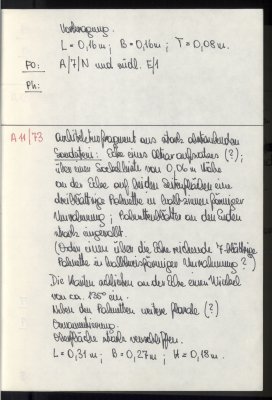 Vorkragung.
L = 0,16 m ; B = 0,16 m ; T = 0,08 m.
FO: A/7/N und südl. E/1
Ph:
A 11/73 Architekturfragment aus stark
Sandstein: Ecke eines Altaraufsatzes (?);
über einer Sockelleiste von 0,06 m Höhe
an der Ecke auf beiden Seitenflächen eine
dreiblättrige Palmette in halbkreisförmiger
Umrahmung ; Palmettblätter an den Enden
stark eingerollt
(Oder einen über die Ecke reichende 7-blättrige
Palmette in halbkreisförmiger Umrahmung ?)
Die Kanten schließen an der Ecke einen Winkel
von ca. 135° ein.
Neben den Palmetten weitere florale (?)
Ornamentierung.
Oberfläche stark verschliffen.
L = 0,31 m ; B = 0,27 m ; H = 0,18 m.